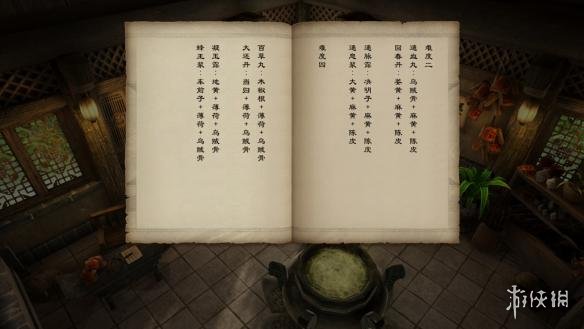 难度二
通血丸：乌贼骨+麻黄+陈皮
回春丹：姜黄+麻黄+陈皮
通脉露：决明子+麻黄+陈皮
通息浆：大黄+麻黄+陈皮
难度四
百草丸：木椒根+薄荷+乌贼骨
大还丹：当归+薄荷+乌贼骨
凝玉露：地黄+薄荷+乌贼骨
蜂王浆：车前子+薄荷+乌贼骨
游侠网